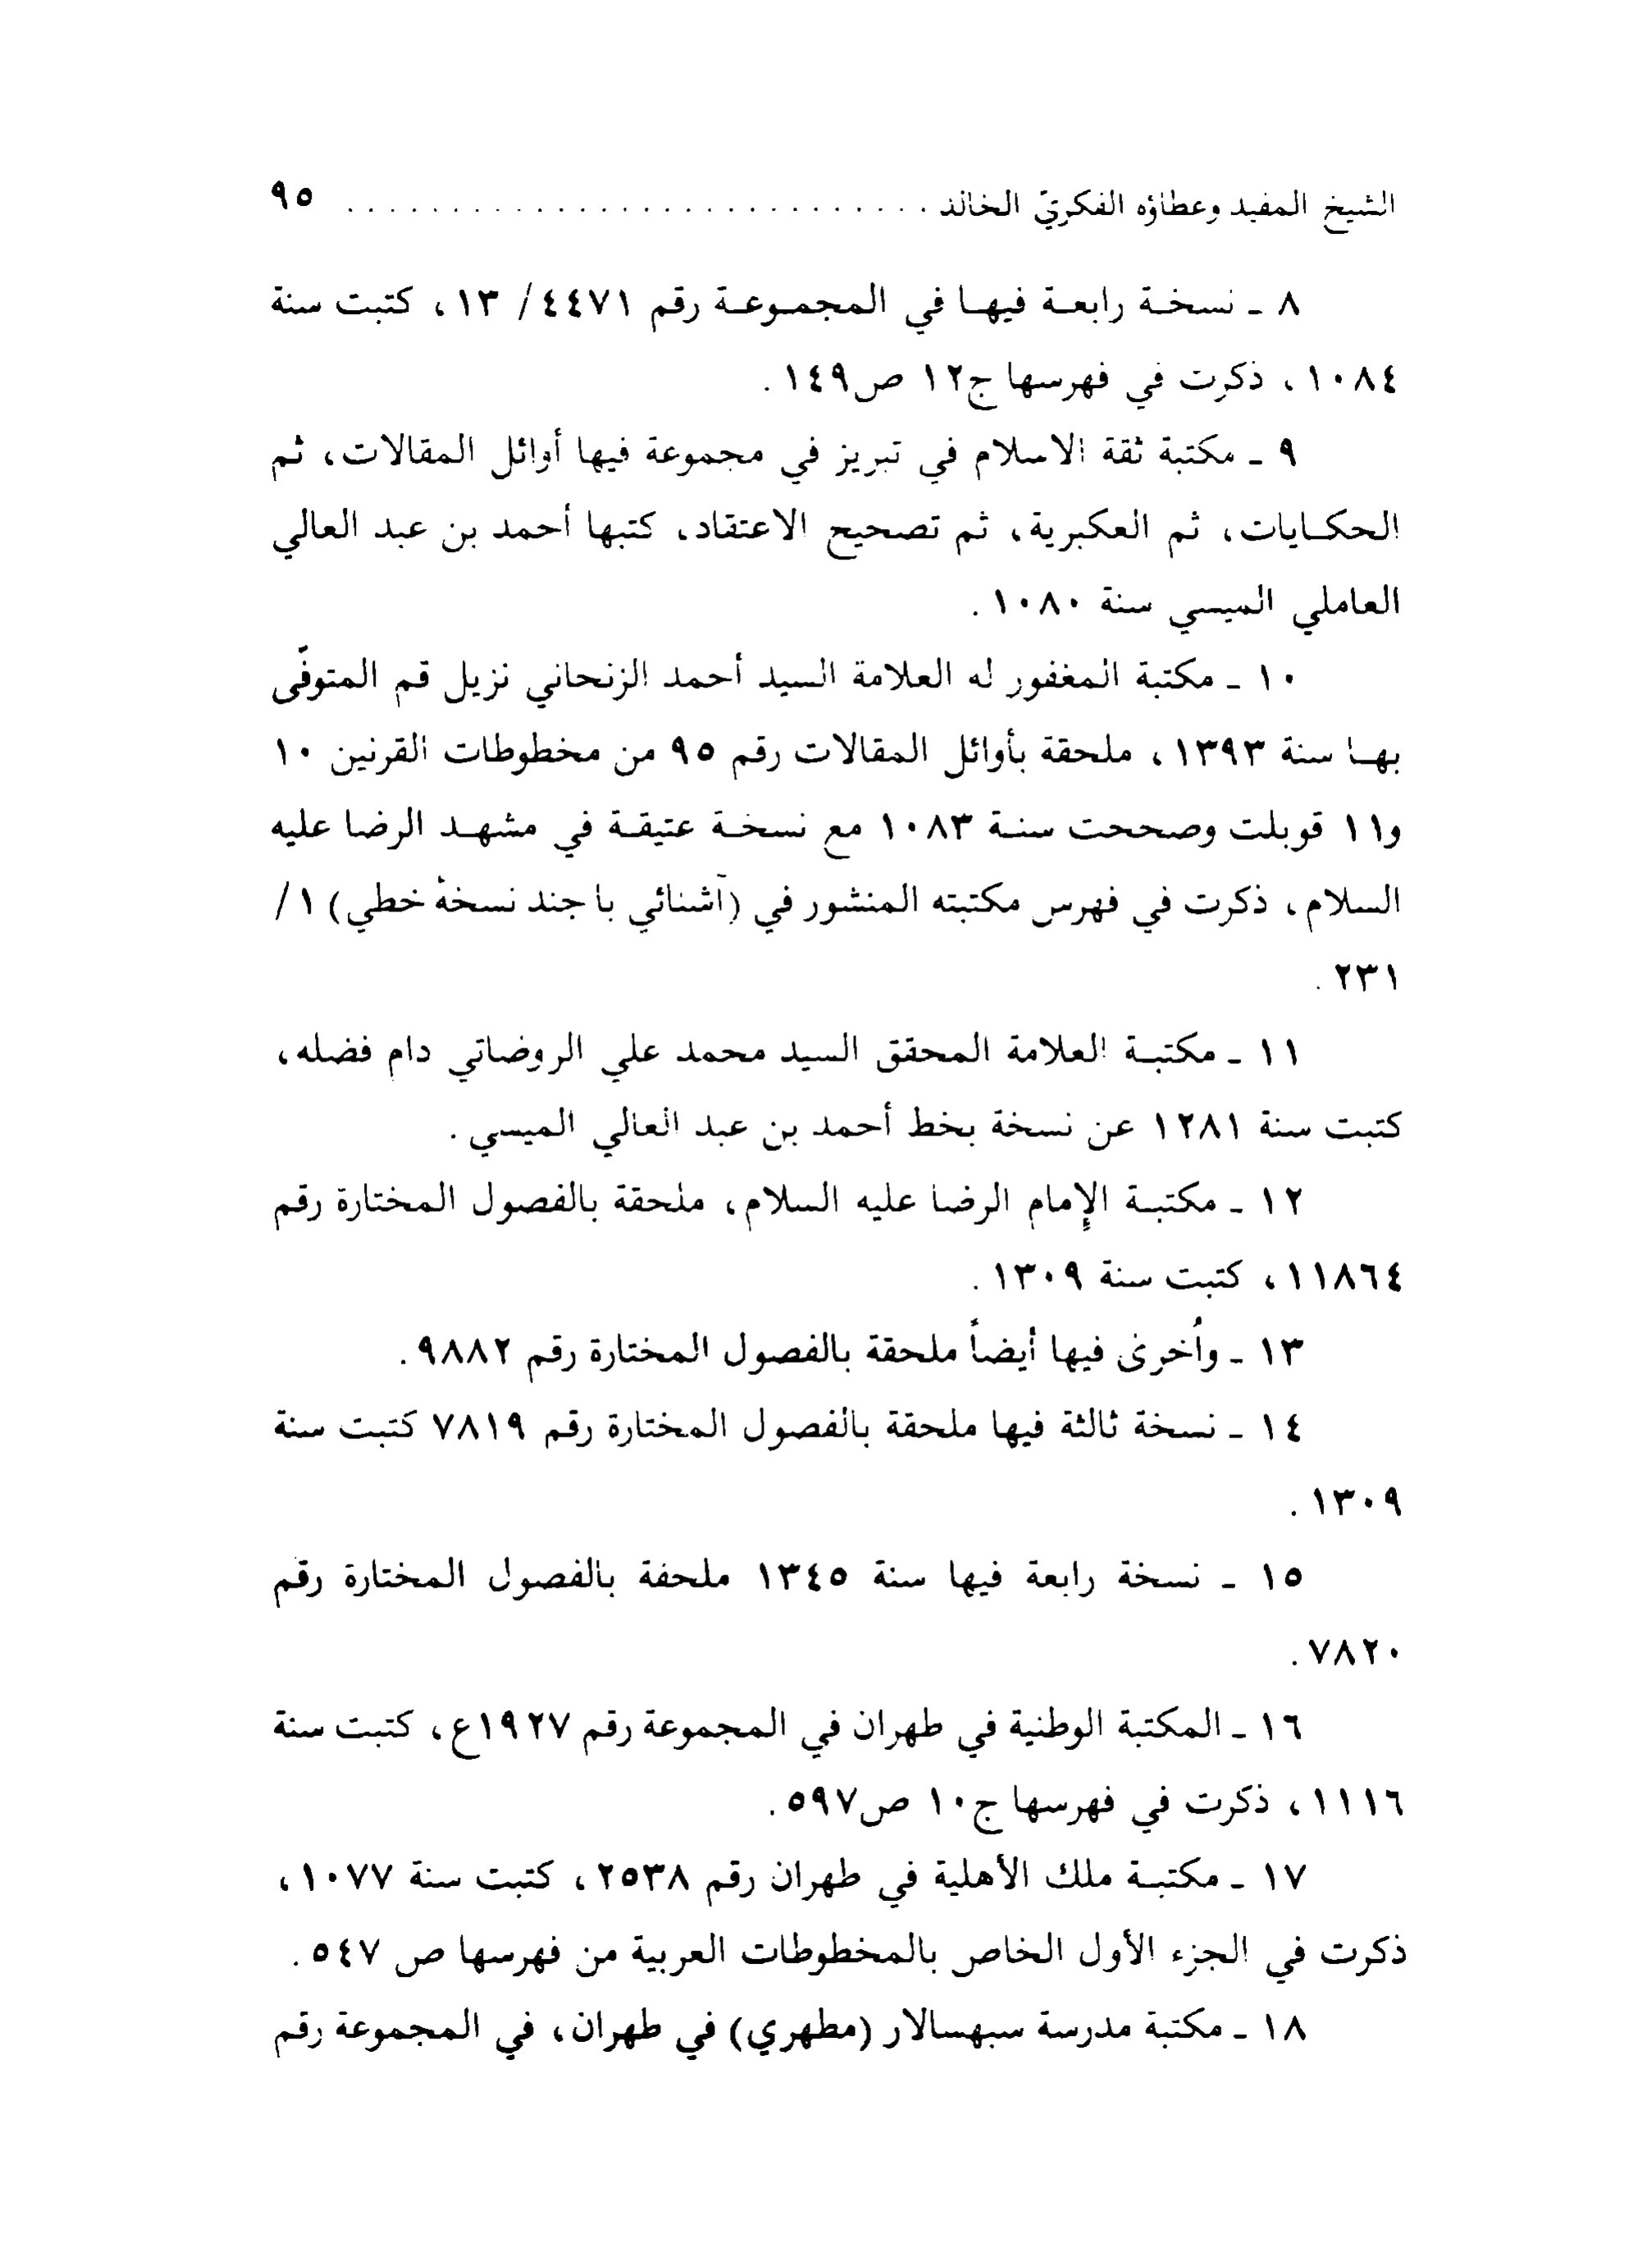 الشيخ المفيد وعطاؤه الفكريّ الخالد ............................ ٩٥
٨ ـ نسخة رابعة فيها في المجموعة رقم ٤٤٧١/ ١٣، كتبت سنة
١٠٨٤، ذكرت في فهرسها ج١٢ ص١٤٩.
٩ ـ مكتبة ثقة الاسلام في تبريز في مجموعة فيها أوائل المقالات، ثم
الحكايات، ثم العكبرية، ثم تصحيح الاعتقاد، كتبها أحمد بن عبد العالي
العاملي الميسي سنة ١٠٨٠.
١٠ ـ مكتبة المغفور له العلامة السيد أحمد الزنحاني نزيل قم المتوفّى
بها سنة ١٣٩٣، ملحقة بأوائل المقالات رقم ٩٥ من مخطوطات القرنين ١٠
و١١ قوبلت وصححت سنة ١٠٨٣ مع نسخة عتيقة في مشهد الرضا عليه
السلام، ذكرت في فهرس مكتبته المنشور في (آشنائي با جند نسخهٔ خطي) ١/
٢٣١.
١١ ـ مكتبة العلامة المحقق السيد محمد علي الروضاتي دام فضله،
كتبت سنة ١٢٨١ عن نسخة بخط أحمد بن عبد العالي الميسي.
١٢ ـ مكتبة الإمام الرضا عليه السلام، ملحقة بالفصول المختارة رقم
١١٨٦٤، كتبت سنة ١٣٠٩.
١٣ ـ وأُخرى فيها أيضاً ملحقة بالفصول المختارة رقم ٩٨٨٢.
١٤ ـ نسخة ثالثة فيها ملحقة بالفصول المختارة رقم ٧٨١٩ كتبت سنة
١٣٠٩.
١٥ ـ نسخة رابعة فيها سنة ١٣٤٥ ملحقة بالفصول المختارة رقم
٧٨٢٠.
١٦ ـ المكتبة الوطنية في طهران في المجموعة رقم ١٩٢٧ع، كتبت سنة
١١١٦، ذكرت في فهرسها ج١٠ ص٥٩٧.
١٧ ـ مكتبة ملك الأهلية في طهران رقم ٢٥٣٨، كتبت سنة ١٠٧٧،
ذكرت في الجزء الأول الخاص بالمخطوطات العربية من فهرسها ص ٥٤٧.
١٨ ـ مكتبة مدرسة سبهسالار (مطهري) في طهران، في المجموعة رقم